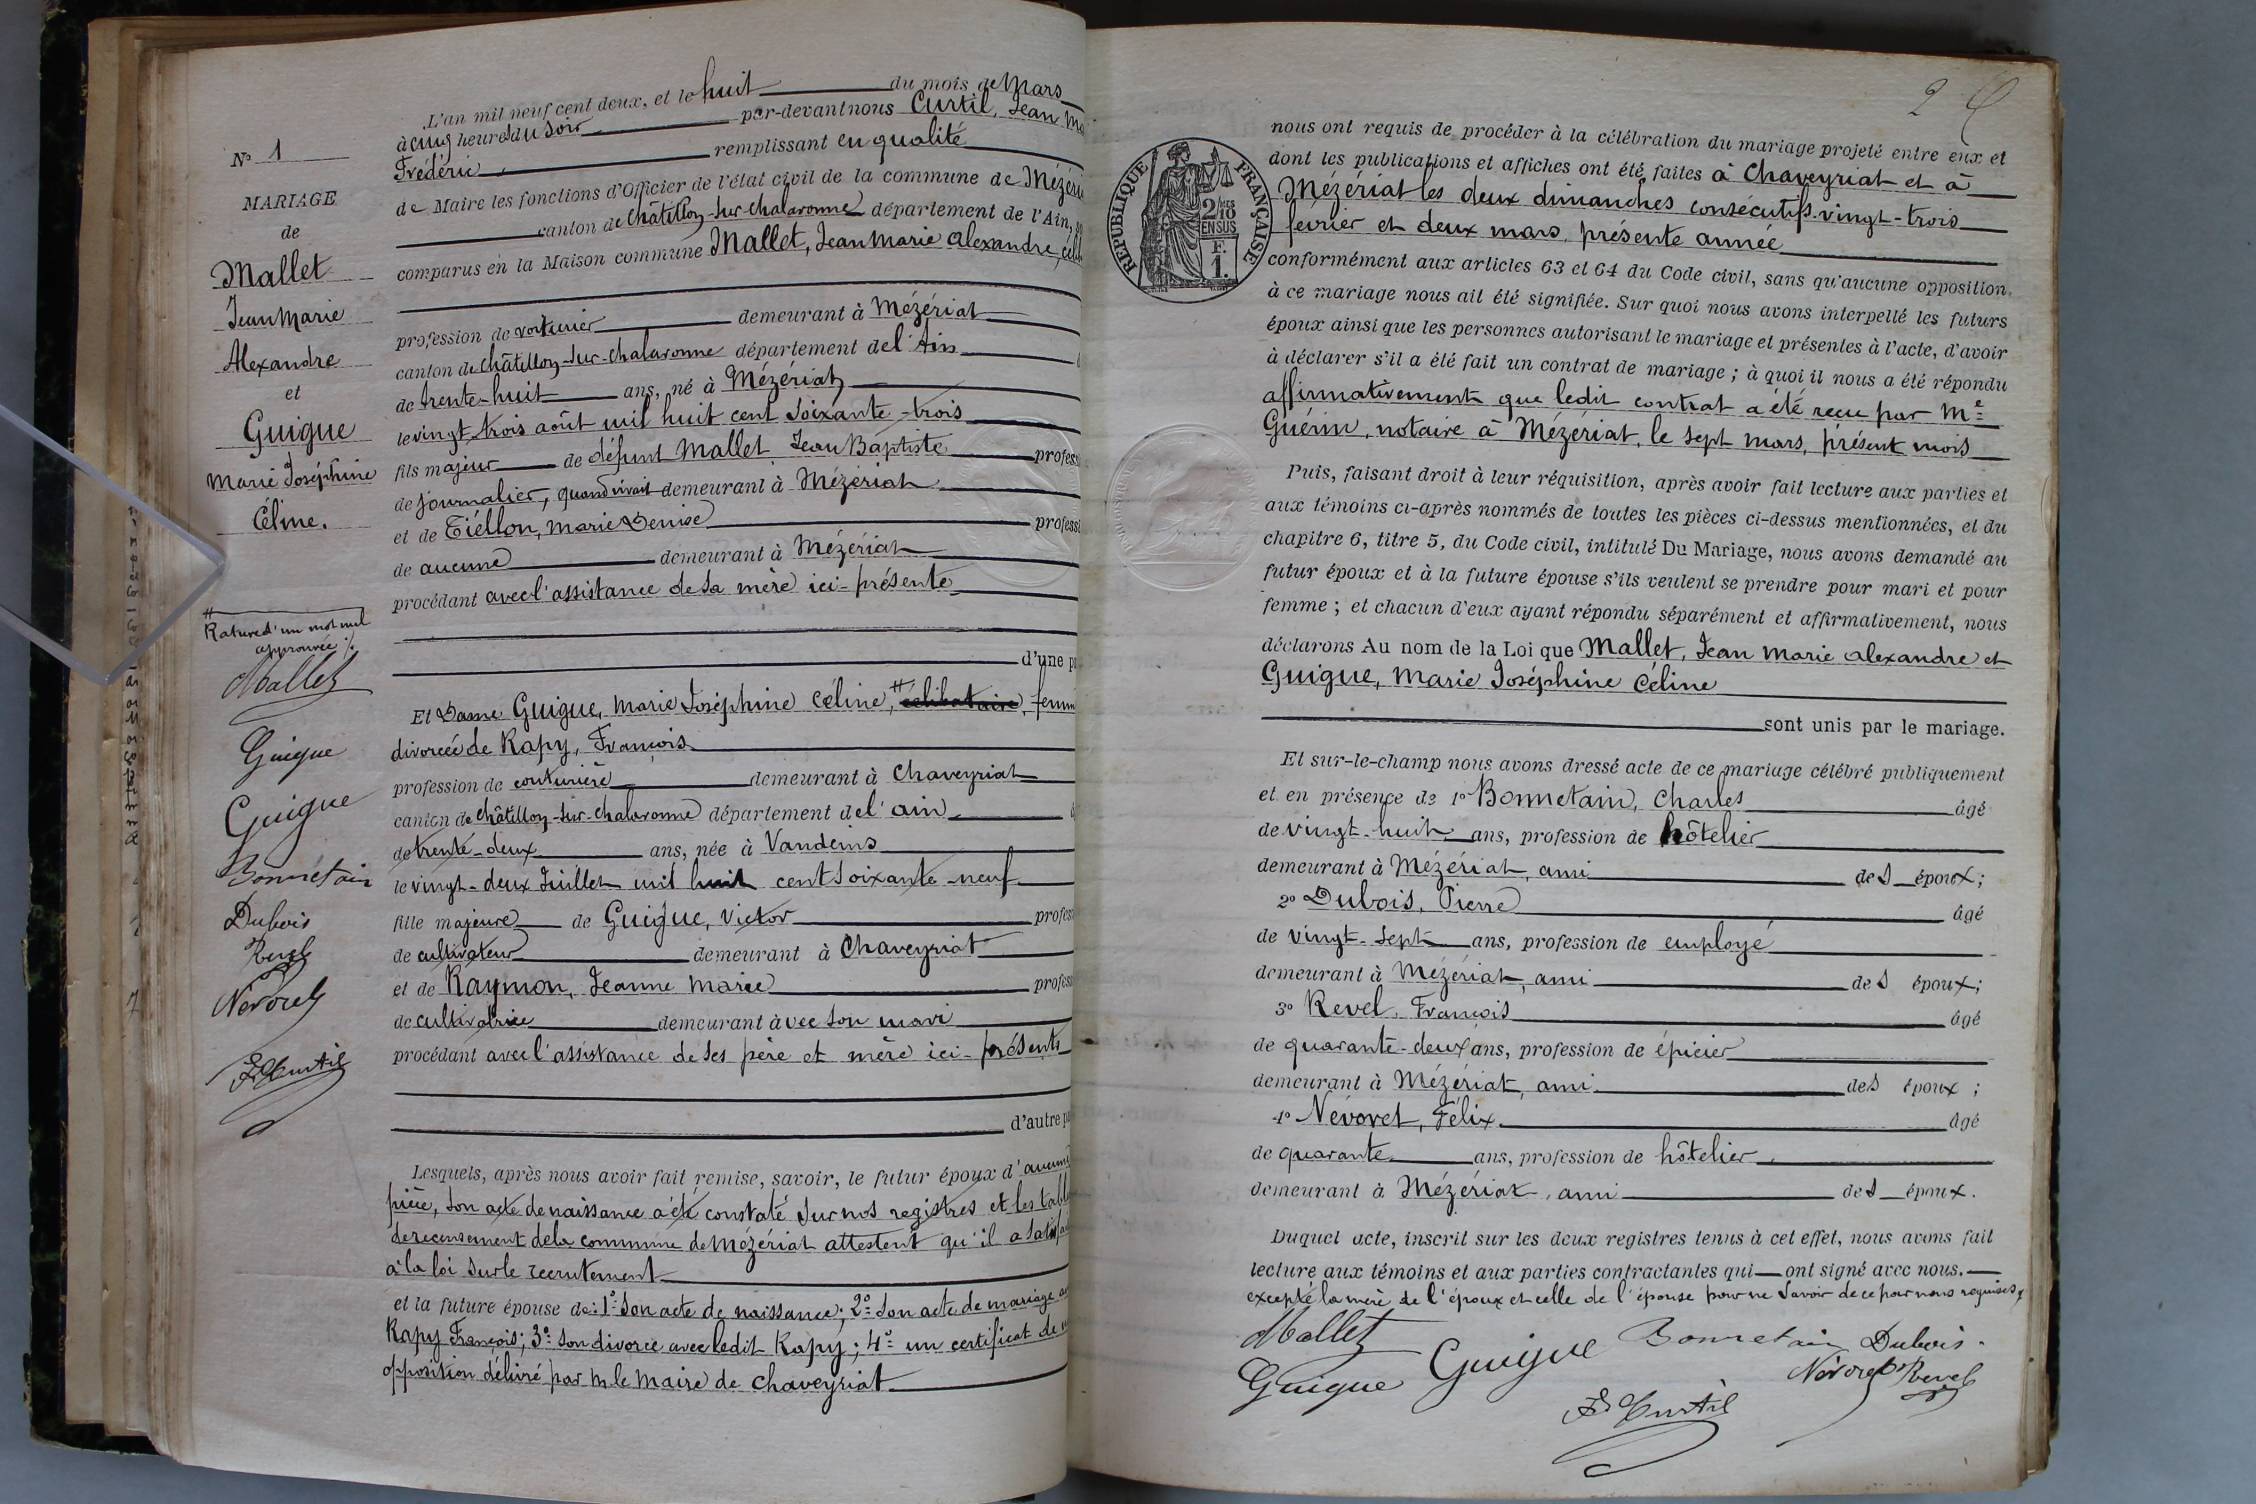 N° 1
MARIAGE
de
Mallet
Jean Marie
Alexandre
et
Guigue
Marie Joséphine
Céline.
Rature d'un mot nul
approuvée ./.
Mallet
Guigue
Guigue
Bonnetain
Dubois
Revel
Névoret
F. Curtil
L'an mil neuf cent deux, et le huit du mois de Mars
à cinq heures du soir par-devant nous Curtil, Jean Ma
Frédéric, remplissant en qualité
de Maire les fonctions d'Officier de l'état civil de la commune de Mézéria
canton de Châtillon-sur-Chalaronne département de l'Ain,
comparus en la Maison commune Mallet, Jean Marie Alexandre, céli
profession de voiturier demeurant à Mézériat
canton de Châtillon-sur-Chalaronne département de l'Ain
de trente-huit ans, né à Mézériat
le vingt-trois août mil huit cent soixante-trois
fils majeur de défunt Mallet Jean Baptiste profess
de journalier, quand vivait demeurant à Mézériat
et de Tiéllon, Marie Denise professi
de aucune demeurant à Mézériat
procédant avec l'assistance de sa mère ici-présente
d'une pa
Et Dame Guigue, Marie Joséphine Céline, célibataire, femm
divorcée de Rapy, François
profession de couturière demeurant à Chaveyriat
canton de Châtillon-sur-Chalaronne département de l'ain
de trente-deux ans, née à Vandeins
le vingt-deux Juillet mil huit cent soixante-neuf
fille majeure de Guigue, Victor profess
de cultivateur demeurant à Chaveyriat
et de Raymon, Jeanne Marie profess
de cultivatrice demeurant avec son mari
procédant avec l'assistance de ses père et mère ici-présents
d'autre pa
Lesquels, après nous avoir fait remise, savoir, le futur époux d'aucune
pièce, son acte de naissance a été constaté sur nos registres et les table
de recensement de la commune de Mézériat attestent qu'il a satisfai
à la loi sur le recrutement
et la future épouse de: 1° son acte de naissance; 2° son acte de mariage a
Rapy François; 3° son divorce avec ledit Rapy; 4° un certificat de
opposition délivré par M. le Maire de Chaveyriat
2
RÉPUBLIQUE FRANÇAISE
2/10
EN SUS
F.
1.
nous ont requis de procéder à la célébration du mariage projeté entre eux et
dont les publications et affiches ont été faites à Chaveyriat et à
Mézériat les deux dimanches consécutifs vingt-trois
février et deux mars, présente année
conformément aux articles 63 et 64 du Code civil, sans qu'aucune opposition
à ce mariage nous ait été signifiée. Sur quoi nous avons interpellé les futurs
époux ainsi que les personnes autorisant le mariage et présentes à l'acte, d'avoir
à déclarer s'il a été fait un contrat de mariage ; à quoi il nous a été répondu
affirmativement que ledit contrat a été reçu par Me
Guérin, notaire à Mézériat, le sept mars, présent mois
Puis, faisant droit à leur réquisition, après avoir fait lecture aux parties et
aux témoins ci-après nommés de toutes les pièces ci-dessus mentionnées, et du
chapitre 6, titre 5, du Code civil, intitulé Du Mariage, nous avons demandé au
futur époux et à la future épouse s'ils veulent se prendre pour mari et pour
femme ; et chacun d'eux ayant répondu séparément et affirmativement, nous
déclarons Au nom de la Loi que Mallet, Jean Marie Alexandre et
Guigue, Marie Joséphine Céline
sont unis par le mariage.
Et sur-le-champ nous avons dressé acte de ce mariage célébré publiquement
et en présence de 1° Bonnetain, Charles âgé
de vingt-huit ans, profession de hôtelier
demeurant à Mézériat, ami des époux;
2° Dubois, Pierre âgé
de vingt-sept ans, profession de employé
demeurant à Mézériat, ami des époux;
3° Revel, François âgé
de quarante-deux ans, profession de épicier
demeurant à Mézériat, ami des époux ;
4° Névoret, Félix âgé
de quarante ans, profession de hôtelier
demeurant à Mézériat, ami des époux.
Duquel acte, inscrit sur les deux registres tenus à cet effet, nous avons fait
lecture aux témoins et aux parties contractantes qui ont signé avec nous.
excepté la mère de l'époux et celle de l'épouse pour ne savoir de ce par nous requises.
Mallet Guigue Bonnetain Dubois
Guigue Névoret Revel
F. Curtil